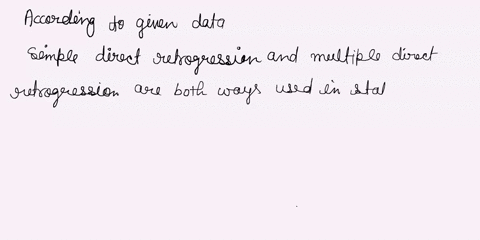 According to given data
Simple direct retrogression and multiple direct
retrogression are both ways used in stat